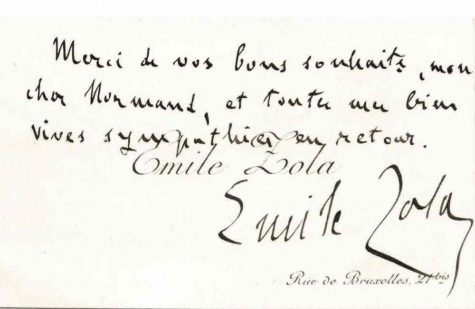 Merci de vos bons souhaits, mon
cher Normand, et toutes mes bien
vives sympathies en retour.
Emile Zola
Emile Zola
Rue de Bruxelles, 21 bis